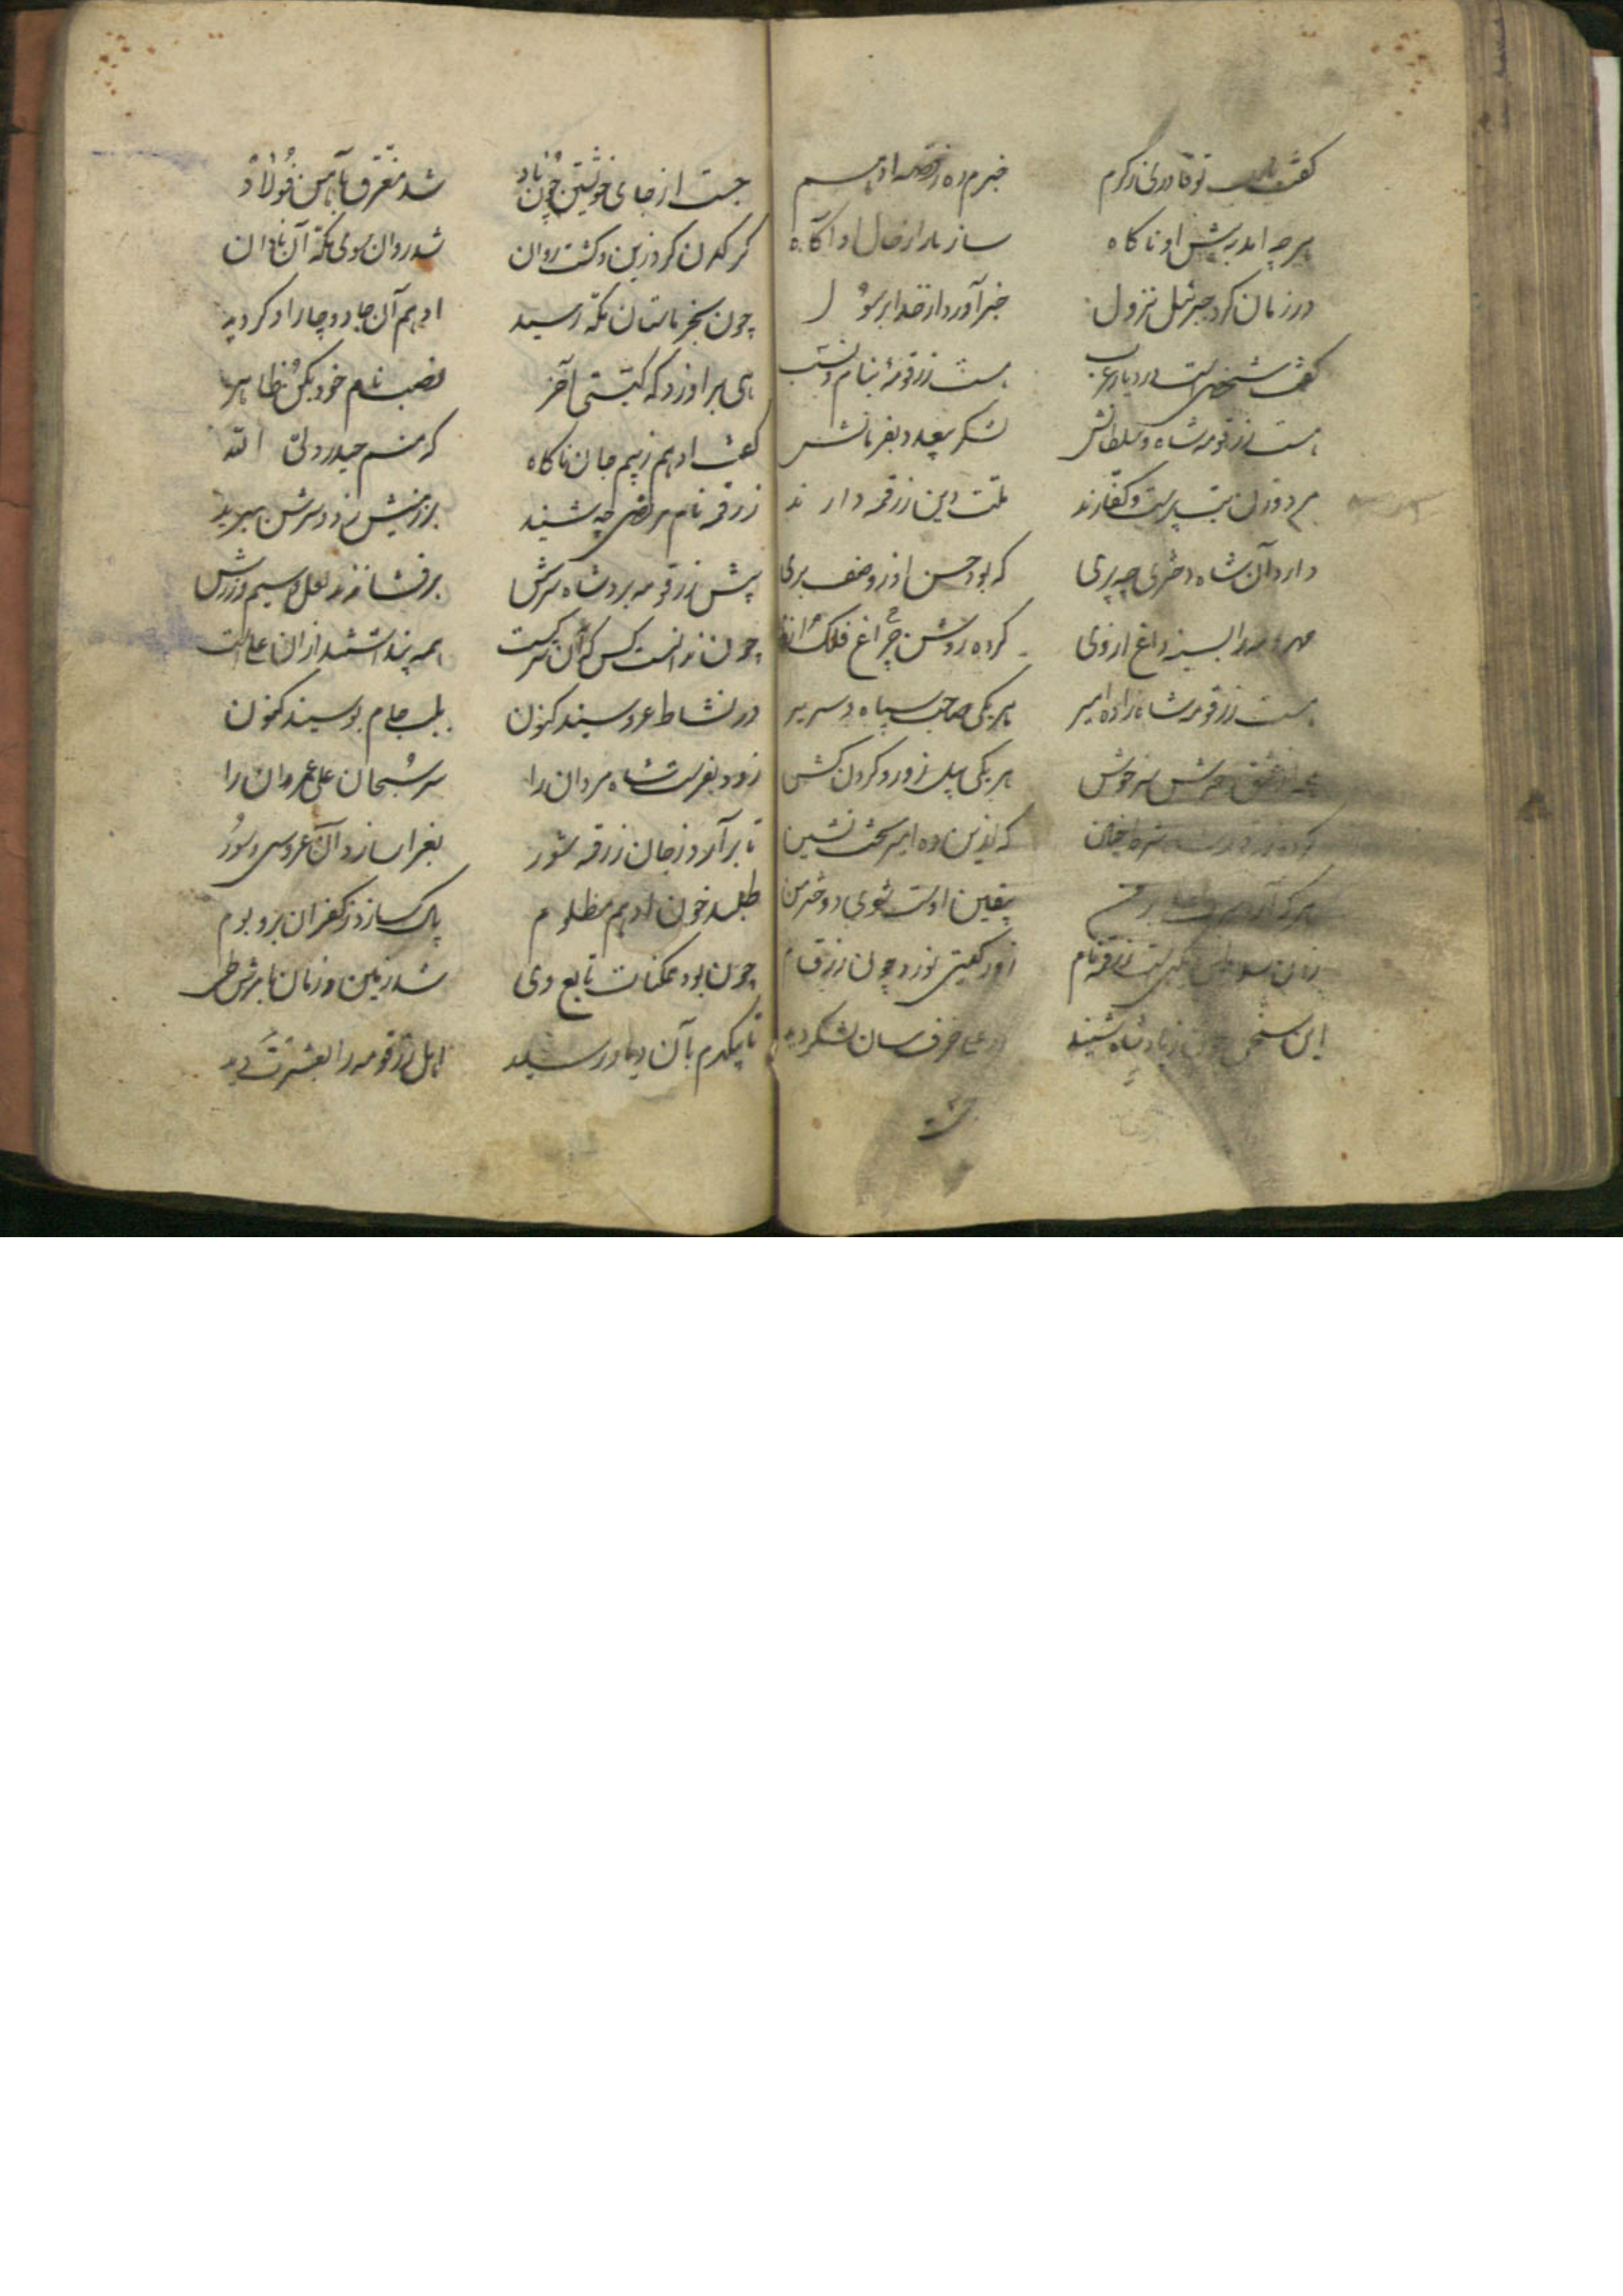 گفت یارب تو قادری ز کرم خبرم ده ز قصه ادهم
هرچه امد به پیش او ناکاه ساز مارا ز حال او آگاه
در زمان کرد جبرئیل نزول خبر آورد از خدا برسول
گفت شخصی است در دیار عرب هست زرقومهٔ بنام و نسب
هست زرقومه شاه و سلطانش لشکر بیعدد بفرمانش
مرد و زن بت پرست و کفارند ملت دین زرقمه دارند
دارد آن شاه دختری چه پری که بود حسن او ز وصف بری
مهر و مه را بسینه داغ ازوی کرده روشن چراغ فلک
هست زرقومه شاهزاده امیر هر یکی صاحب سپاه و سریر
همه از عشق سرخوش هر یکی پیل زور و کردن کش
که ازین ده امیر تخت نشین
هرکه آرد یقین اوست شوی دختر من
زرقه نام زود کیتی نورد چون
این سخن چون ز پادشاه شنید
جست از جای خویشتن چون باد شد مغرق بآهن فولاد
کرکدن کرد زین و کشت روان شد روان سوی مکه آن نادان
چون بنخلستان مکه رسید ادهم آن جا دوچار او کردید
هی برآورد که کیستی آخر نصب نام خود بکو ظاهر
گفت ادهم ز بیم جان ناکاه که منم حیدر ولی الله
زرقه نام مرتضی چه شنید بر زمینش زد و سرش ببرید
پیش زرقومه برد شاه سرش برفشاندند لعل و سیم و زرش
چون ندانست کس که آن سر کیست همه پنداشتند ازان علیست
در نشاط عروسیند کنون بلب جام بوسیند کنون
زود بفرست شاه مردان را سر شجعان علی عمران را
تا برآرد ز جان زرقه شور بعزا سازد آن عروسی و سور
طلبد خون ادهم مظلوم پاک سازد ز کفر آن بر و بوم
چون بود ممکنات تابع وی شد زمین و زمان بامرش طی
تا بیکدم بآن دیار رسید اهل زرقومه را بعشرت دید
جست